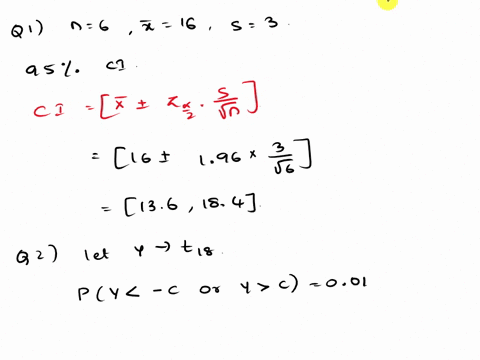 Q1) n=6 , x̄=16 , s=3
95% CI
CI = [x̄ ± z_{α/2} · s/√n]
= [16 ± 1.96 × 3/√6]
= [13.6 , 18.4].
Q2) let Y → t_{18}
P(Y < -c or Y > c) = 0.01